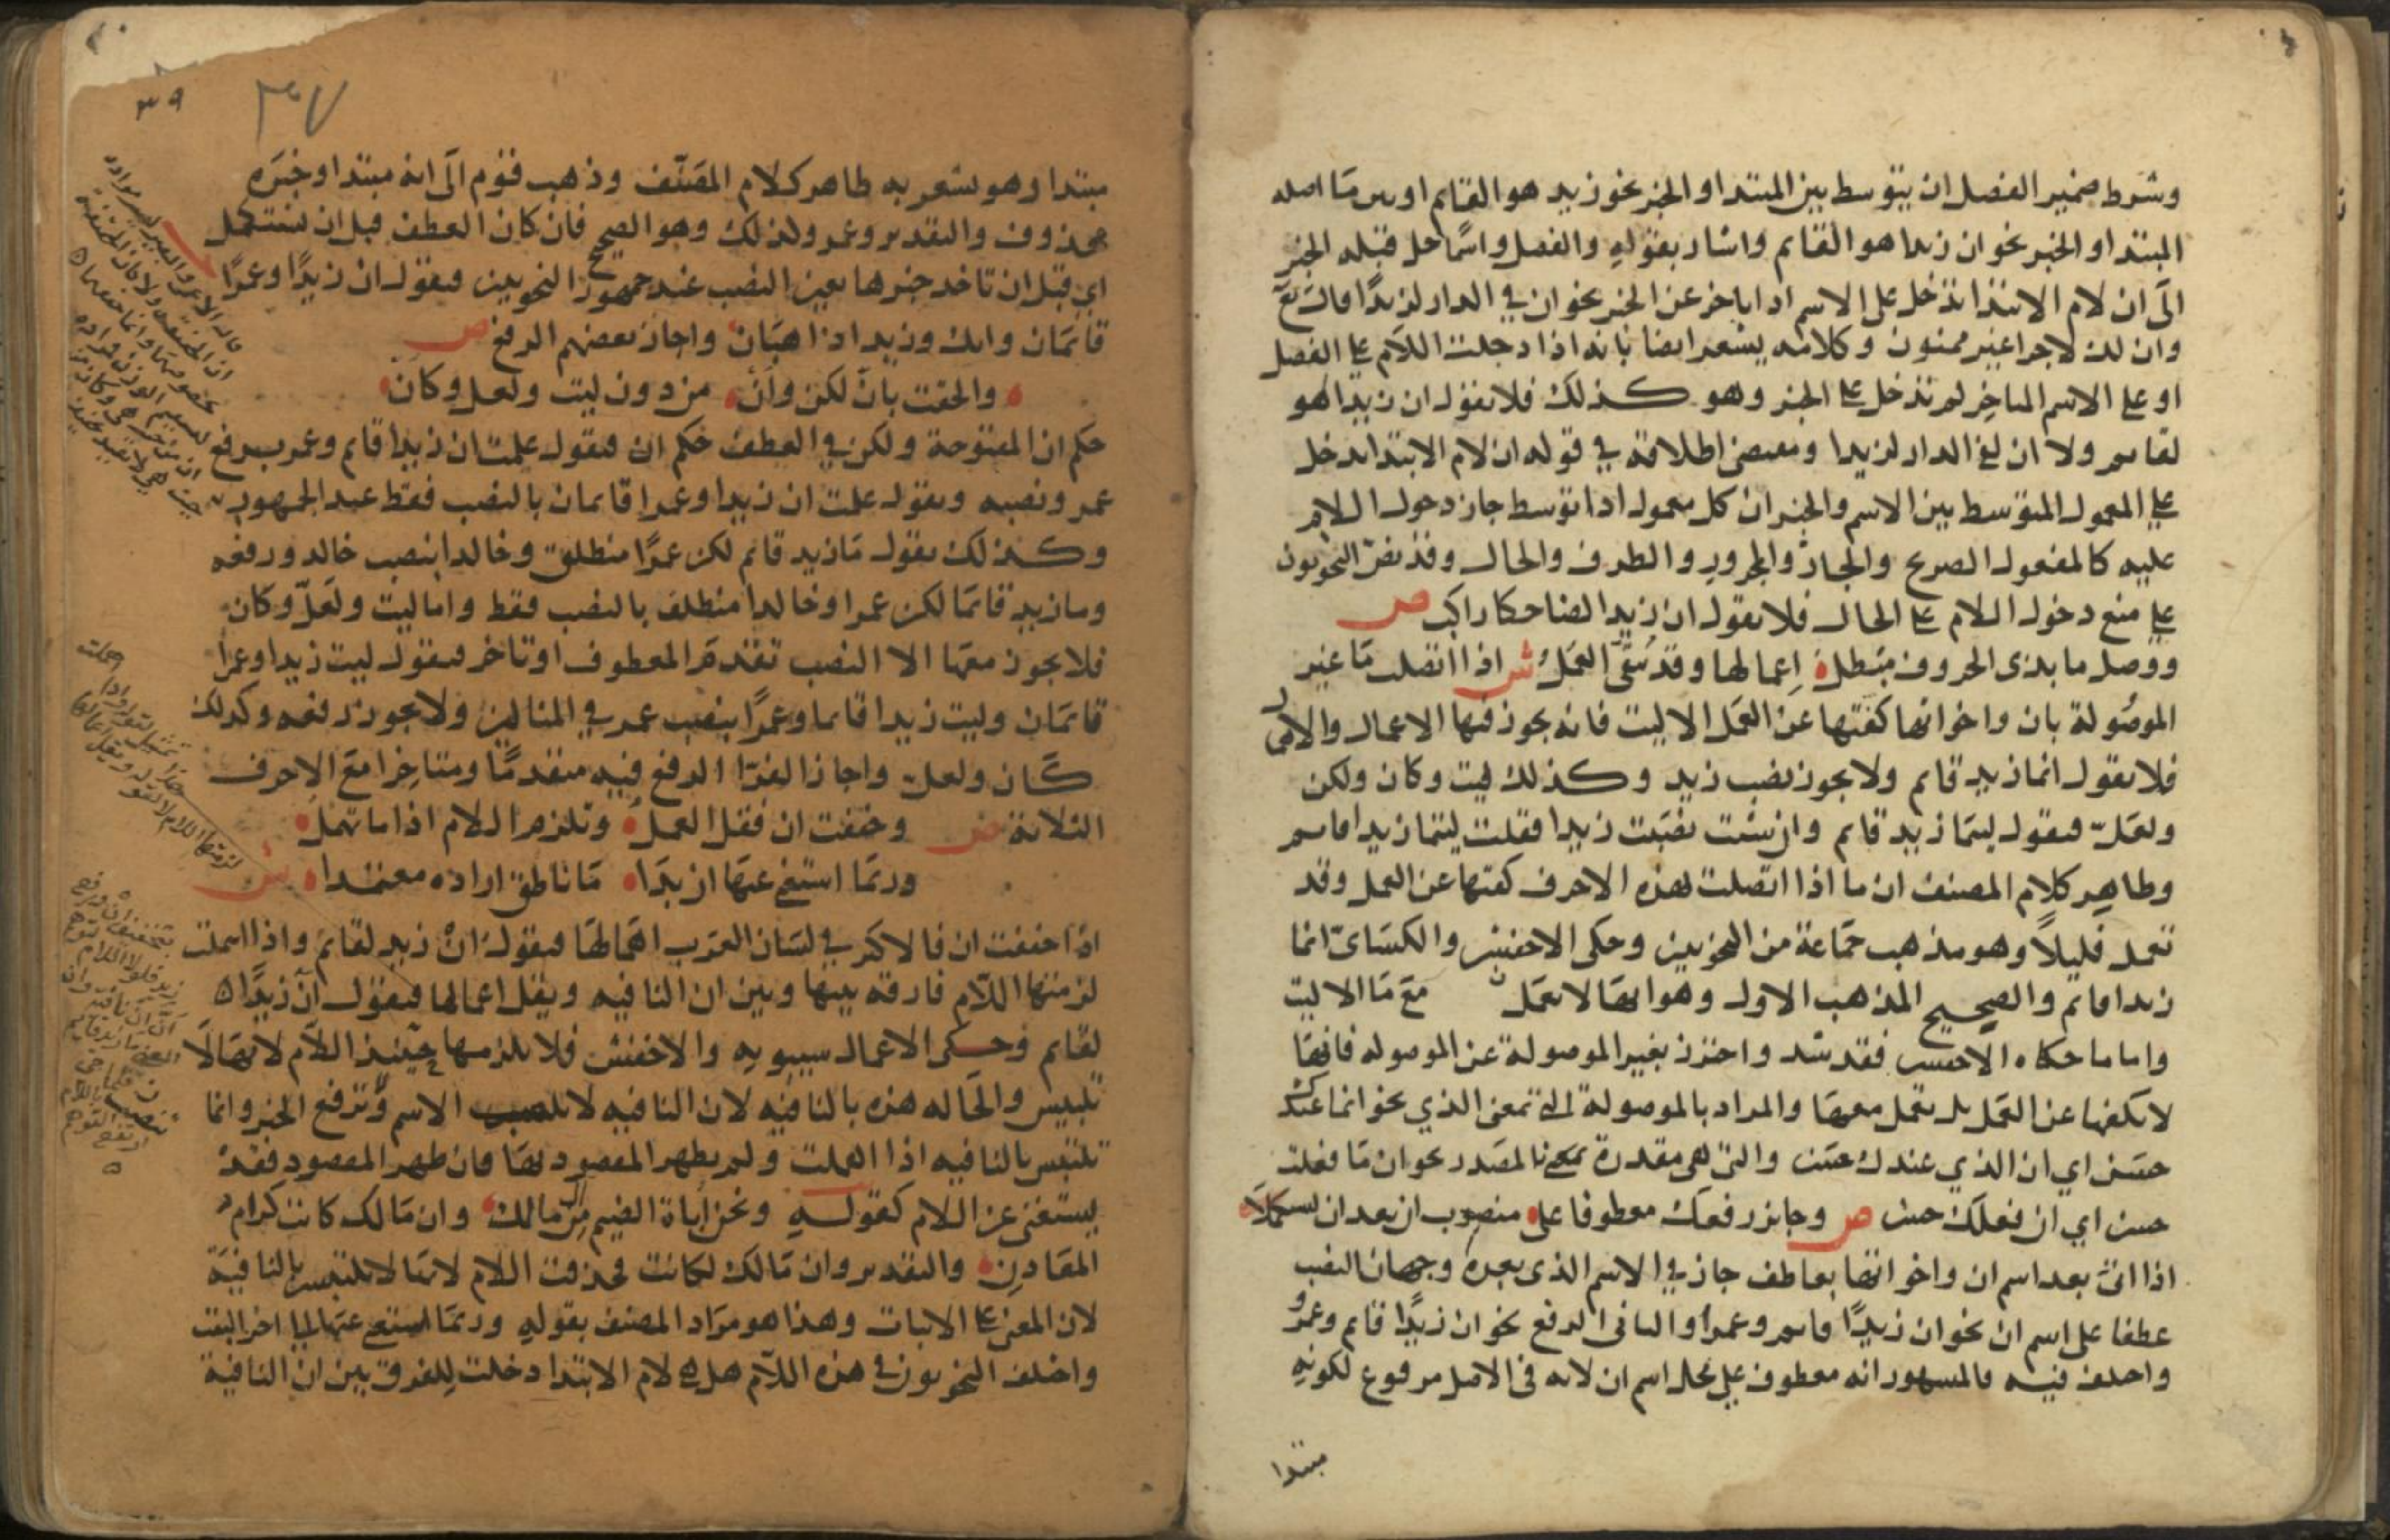 وشرط ضمير الفصل ان يتوسط بين المبتدا والخبر نحو زيد هو القايم او بين ما اصله
المبتدا والخبر نحو ان زيدا هو القايم واشار بقوله والفصل واسما حل قبله الخبر
الى ان لام الابتدا تدخل على الاسم اذا تاخر عن الخبر نحو ان في الدار لزيدا قال تع
وان لك لاجرا غير ممنون وكلامه يشعر ايضا بانه اذا دخلت اللام على الفصل
او على الاسم المتاخر لم تدخل على الخبر وهو كذلك فلا تقول ان زيدا لهو
لقايم ولا ان لفي الدار لزيدا ومقتضى اطلاقه في قوله ان لام الابتدا تدخل
على المعمول المتوسط بين الاسم والخبر ان كل معمول اذا توسط جاز دخول اللام
عليه كالمفعول الصريح والجار والمجرور والظرف والحال وقد نص النحويون
على منع دخول اللام على الحال فلا تقول ان زيدا لضاحكا راكب ص
ووصل ما بذي الحروف مبطل اعمالها وقد يبقى العمل ش اذا اتصلت ما غير
الموصولة بان واخواتها كفتها عن العمل الا ليت فانه يجوز فيها الاعمال والاهمال
فلا تقول انما زيد قايم ولا يجوز نصب زيد وكذلك ليت وكان ولكن
ولعل فتقول ليتما زيد قايم وان شئت نصبت زيدا فقلت ليتما زيدا قايم
وظاهر كلام المصنف ان ما اذا اتصلت بهذه الاحرف كفتها عن العمل وقد
تعمل قليلا وهو مذهب جماعة من النحويين وحكى الاخفش والكسائي انما
زيدا قايم والصحيح المذهب الاول وهو انها لا تعمل مع ما الا ليت
واما ما حكاه الاخفش فقد شذ واحترز بغير الموصولة عن الموصوله فانها
لا تكفها عن العمل بل تعمل معها والمراد بالموصولة التي بمعنى الذي نحو انما عندك
حسن اي ان الذي عندك حسن والتي هي مقدرة بالمصدر نحو ان ما فعلت
حسن اي ان فعلك حسن ص وجايز رفعك معطوفا على منصوب ان بعد ان تستكملا
اذا اتى بعد اسم ان واخواتها بعاطف جاز في الاسم الذي بعده وجهان النصب
عطفا على اسم ان نحو ان زيدا قايم وعمرا والثاني الرفع نحو ان زيدا قايم وعمرو
واختلف فيه فالمشهور انه معطوف على محل اسم ان لانه في الاصل مرفوع لكونه
مبتدا
٣٩
٣٧
مبتدا وهو يشعر به ظاهر كلام المصنف وذهب قوم الى انه مبتدا وخبره
محذوف والتقدير وعمرو كذلك وهو الصحيح فان كان العطف قبل ان تستكمل
اي قبل ان تاخد خبرها تعين النصب عند جمهور النحويين فتقول ان زيدا وعمرا
قايمان وانك وزيدا ذاهبان واجاز بعضهم الرفع ص
والحقت بان لكن وان من دون ليت ولعل وكان
حكم ان المفتوحة ولكن في العطف حكم ان فتقول علمت ان زيدا قايم وعمرو برفع
عمرو ونصبه وتقول علمت ان زيدا وعمرا قايمان بالنصب فقط عند الجمهور
وكذلك تقول ما زيد قايم لكن عمرا منطلق وخالدا بنصب خالد ورفعه
وما زيد قايما لكن عمرا وخالدا منطلق بالنصب فقط واما ليت ولعل وكان
فلا يجوز معها الا النصب تقدم المعطوف او تاخر فتقول ليت زيدا وعمرا
قايمان وليت زيدا قايما وعمرا بنصب عمرو في المثالين ولا يجوز رفعه وكذلك
كان ولعل واجاز الفرا الرفع فيه متقدما ومتاخرا مع الاحرف
الثلاثة ص وخففت ان فقل العمل وتلزم اللام اذا ما تهمل
وربما استغني عنها ان بدا ما ناطق اراده معتمدا ش
اذا خففت ان فالاكثر في لسان العرب اهمالها فتقول ان زيد لقايم واذا اهملت
لزمتها اللام فارقه بينها وبين ان النافيه ويقل اعمالها فيقول ان زيدا
لقايم وحكى الاعمال سيبويه والاخفش فلا يلزمها حينئذ اللام لانها لا
تلتبس والحاله هذه بالنافيه لان النافيه لا تنصب الاسم وترفع الخبر وانما
تلتبس بالنافيه اذا اهملت ولم يظهر المقصود بها فان ظهر المقصود فقد
يستغنى عن اللام كقوله ونحن اباة الضيم من ال مالك وان مالك كانت كرام
المعادن والتقدير وان مالك لكانت فحذفت اللام لانها لا تلتبس بالنافية
لان المعنى على الاثبات وهذا هو مراد المصنف بقوله وربما استغني عنها الى اخر البيت
واختلف النحويون في هذه اللام هل هي لام الابتدا دخلت للفرق بين ان النافية